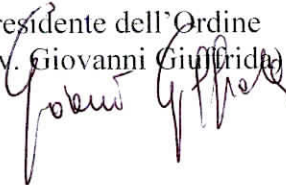 residente dell'Ordine
v. Giovanni Giuffrida)